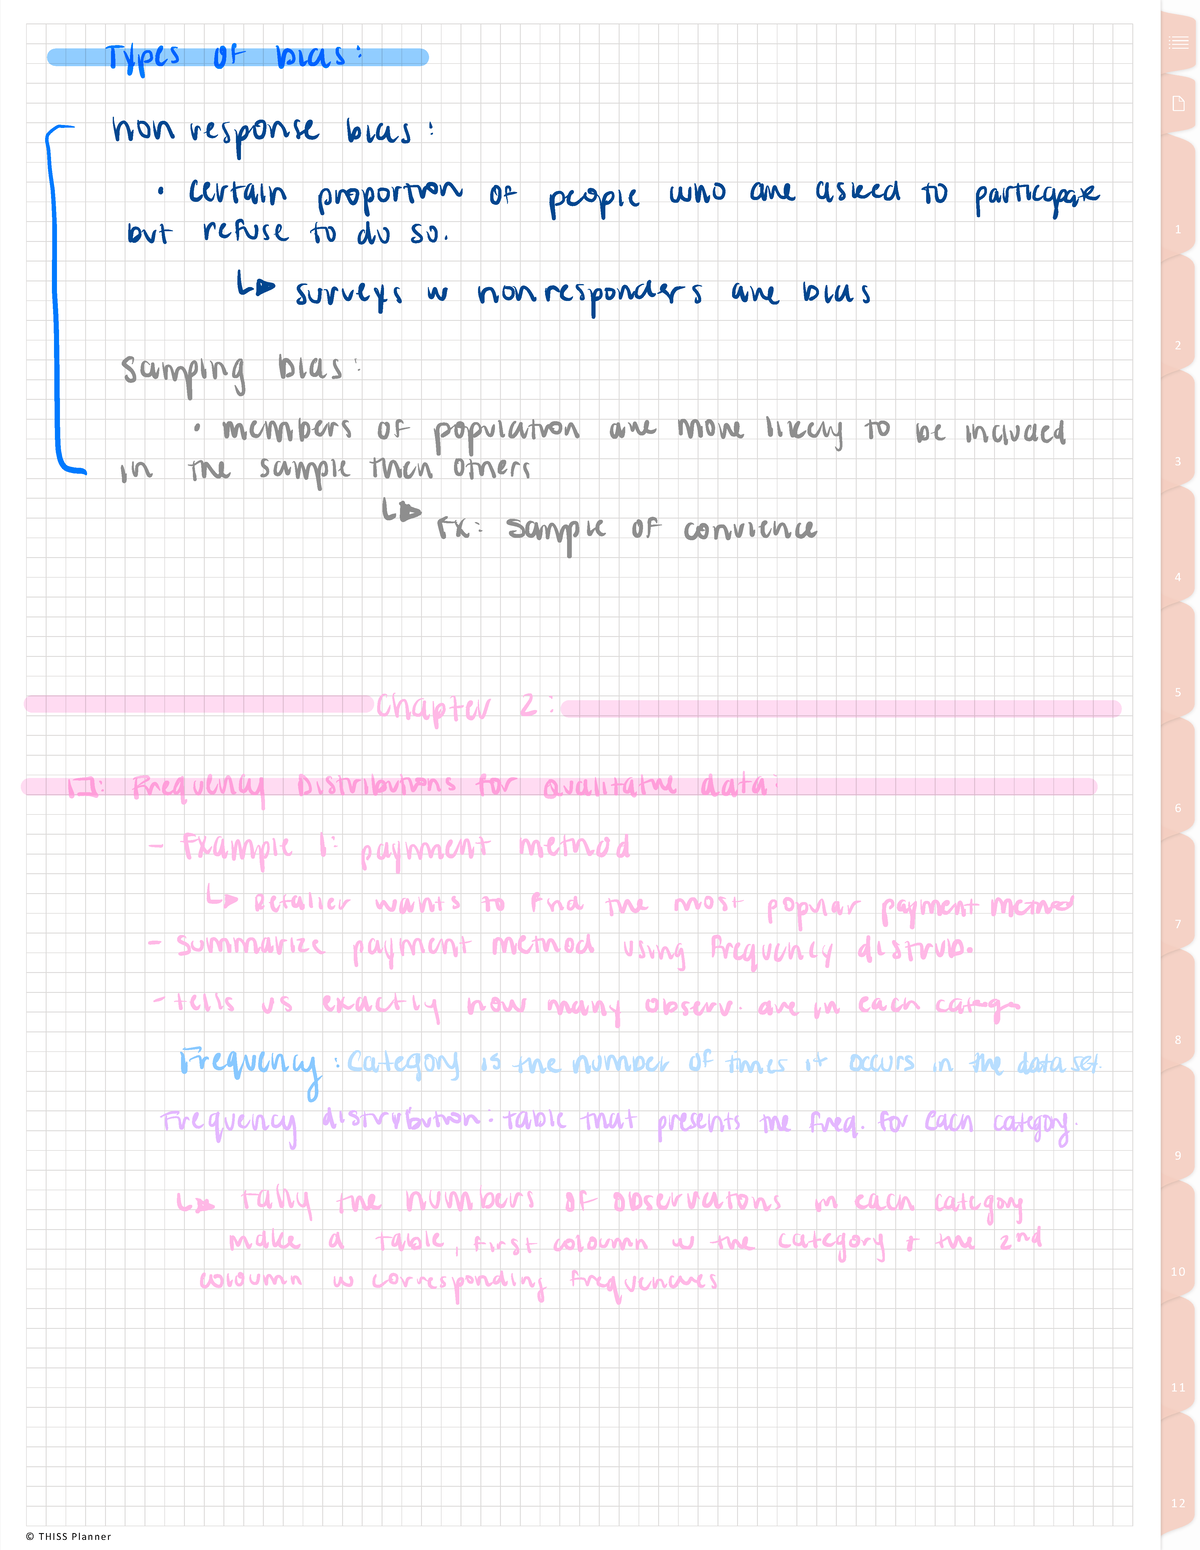 Types of bias:
non response bias:
• certain proportion of people who are asked to participate
but refuse to do so.
↳ surveys w nonresponders are bias
Samping bias:
• members of population are more likely to be included
in the sample then others
↳ Ex: sample of convience
Chapter 2:
Frequency Distributions for Qualitative data:
- Example 1: payment method
↳ Retalier wants to find the most popular payment method
- summarize payment method using frequency distrub.
- tells us exactly how many observ. are in each
Frequency: Category is the number of times it occurs in the data set.
Frequency distribution: table that presents the freq. for each category.
↳ tally the numbers of observations in each category
make a table, first coloumn w the category + the 2nd
coloumn w corresponding frequencies
1
2
3
4
5
6
7
8
9
10
11
12
© THISS Planner